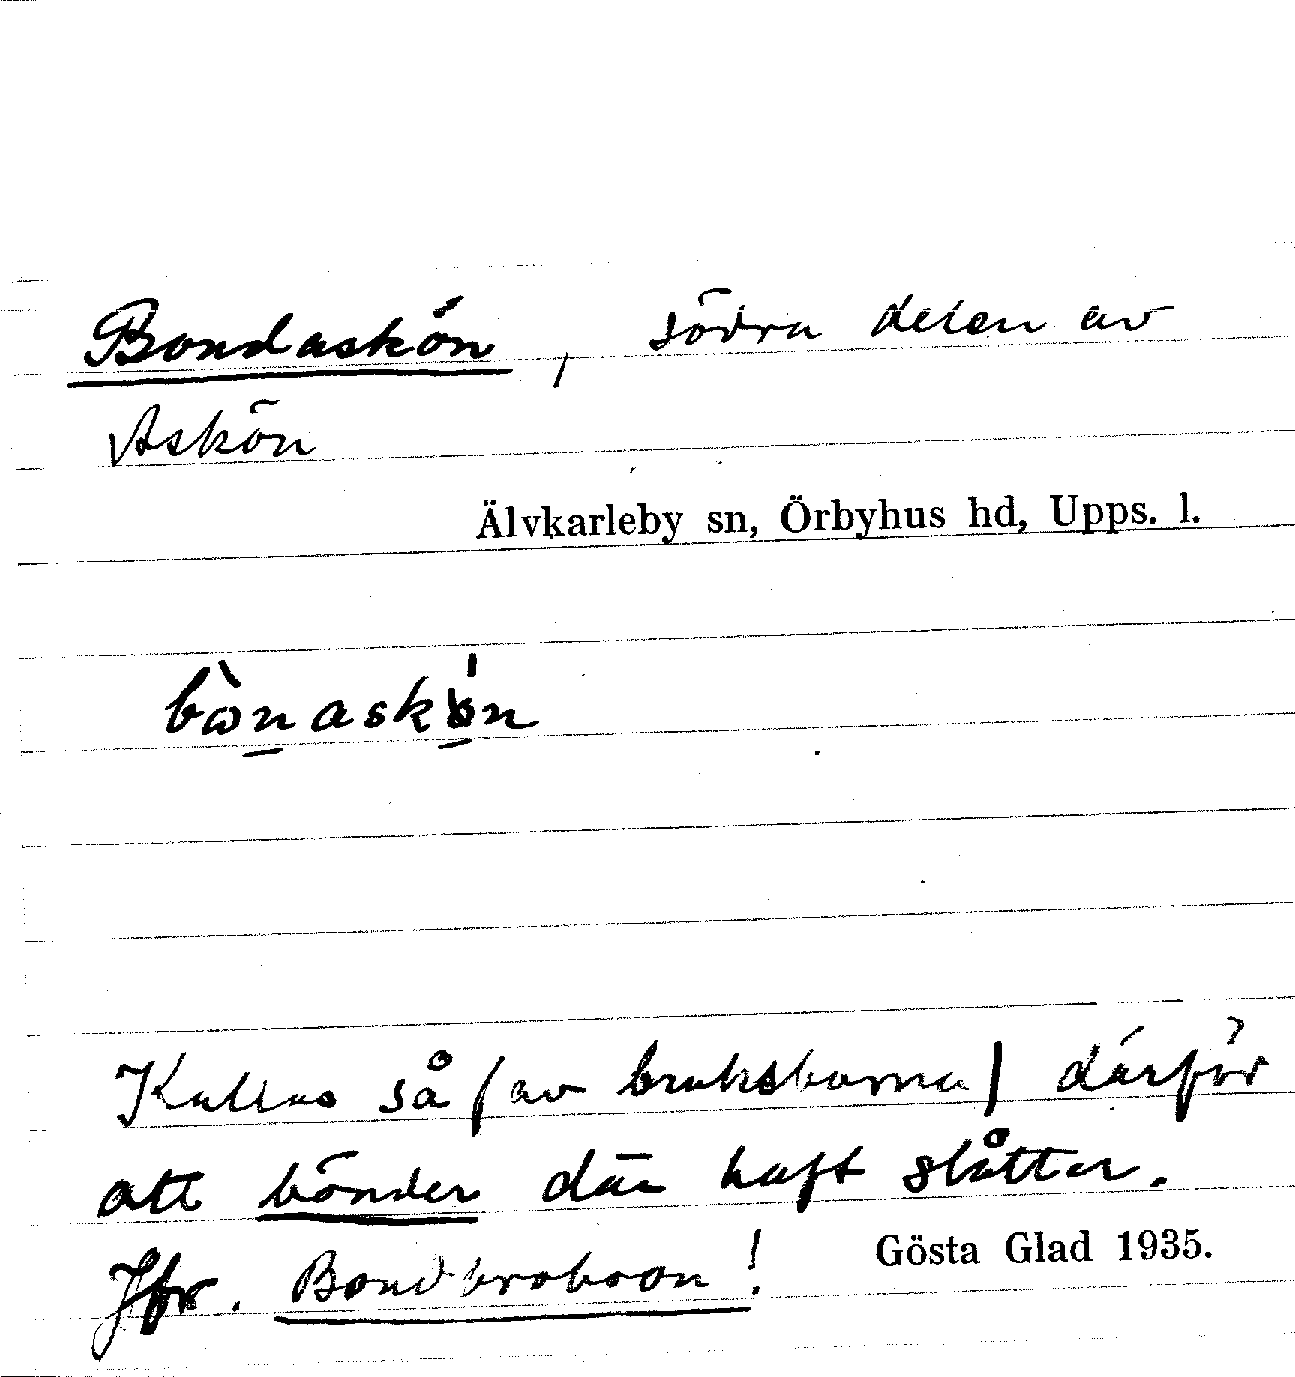 Bondaskön, södra delen av
Askön
Älvkarleby sn, Örbyhus hd, Upps. l.
bònaskön
Kallas så (av bruksbarna) därför
att bönder där haft slåtter.
Jfr. !
Gösta Glad 1935.